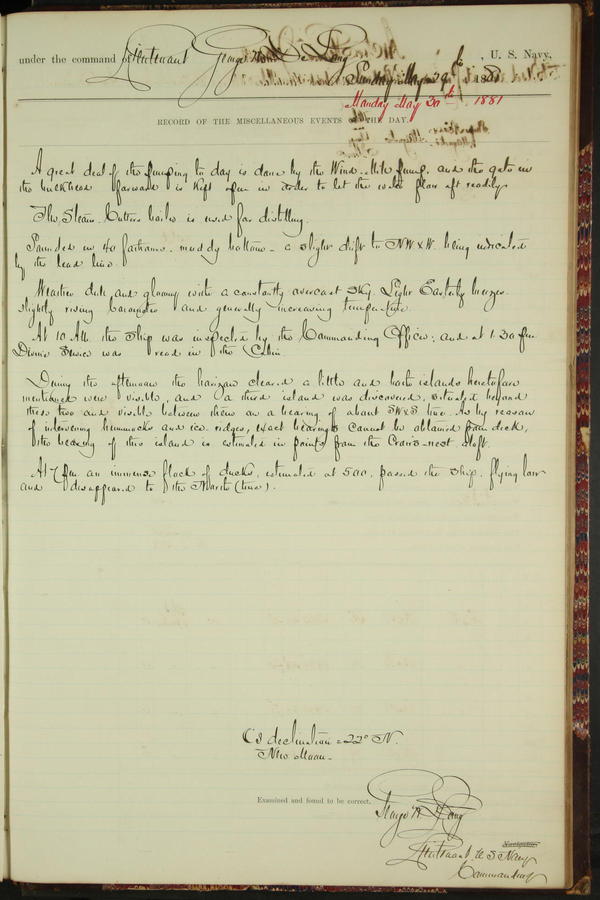 under the command of Lieutenant George W. De Long, U. S. Navy,
Sunday May 29th 1881
Monday May 30th 1881
RECORD OF THE MISCELLANEOUS EVENTS OF THE DAY.
A great deal of the pumping to day is done by the Wind-Mill pump, and the gate in
the bulkhead forward is kept open in order to let the water flow aft readily
The Steam Cutters boiler is used for distilling.
Sounded in 40 fathoms. muddy bottom - a slight drift to NW x W. being indicated
by the lead line
Weather dull and gloomy with a constantly overcast sky. Light Easterly breezes
slightly rising barometer and generally increasing temperature.
At 10 AM the Ship was inspected by the Commanding Officer; and at 1.30 pm
Divine Service was read in the Cabin.
During the afternoon the horizon cleared a little and both islands heretofore
mentioned were visible, and a third island was discovered, situated beyond
these two and visible between them on a bearing of about SW x S true. As by reason
of intervening hummocks and ice ridges, exact bearings cannot be obtained from deck,
the bearing of this island is estimated in points from the Crow's-nest aloft.
At 7 pm an immense flock of ducks, estimated at 500, passed the ship, flying low
and disappeared to the North (true).
declination = 22° N.
New Moon -
Examined and found to be correct.
George W. De Long
Navigator
Lieutenant U S Navy
Commanding